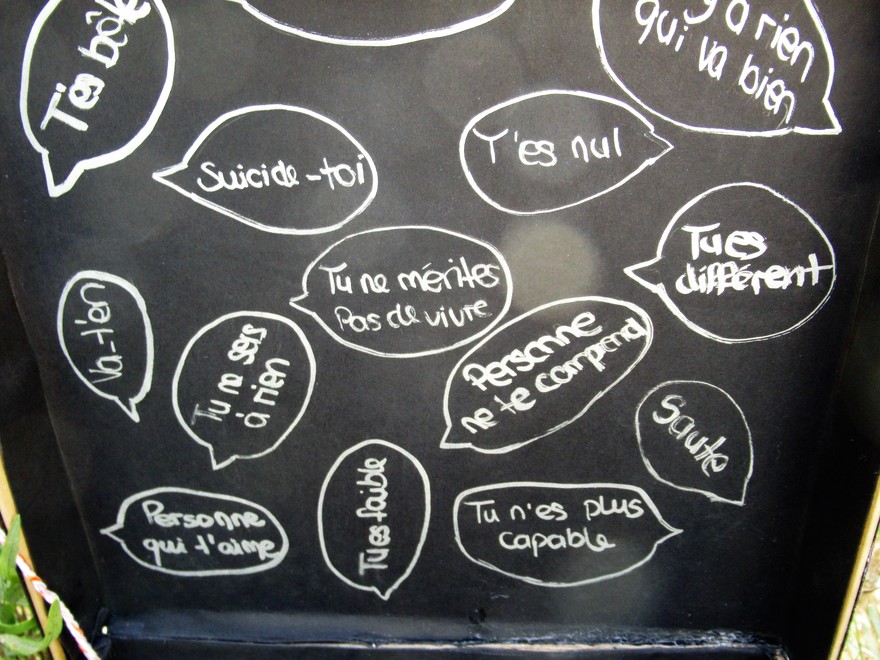 T'es bête
y a rien
qui va bien
Suicide-toi
T'es nul
Tu es
différent
Tu ne mérites
Pas de vivre
Va-t'en
Tu ne sers
à rien
Personne
ne te comprend
Saute
Personne
qui t'aime
Tu es faible
Tu n'es plus
capable